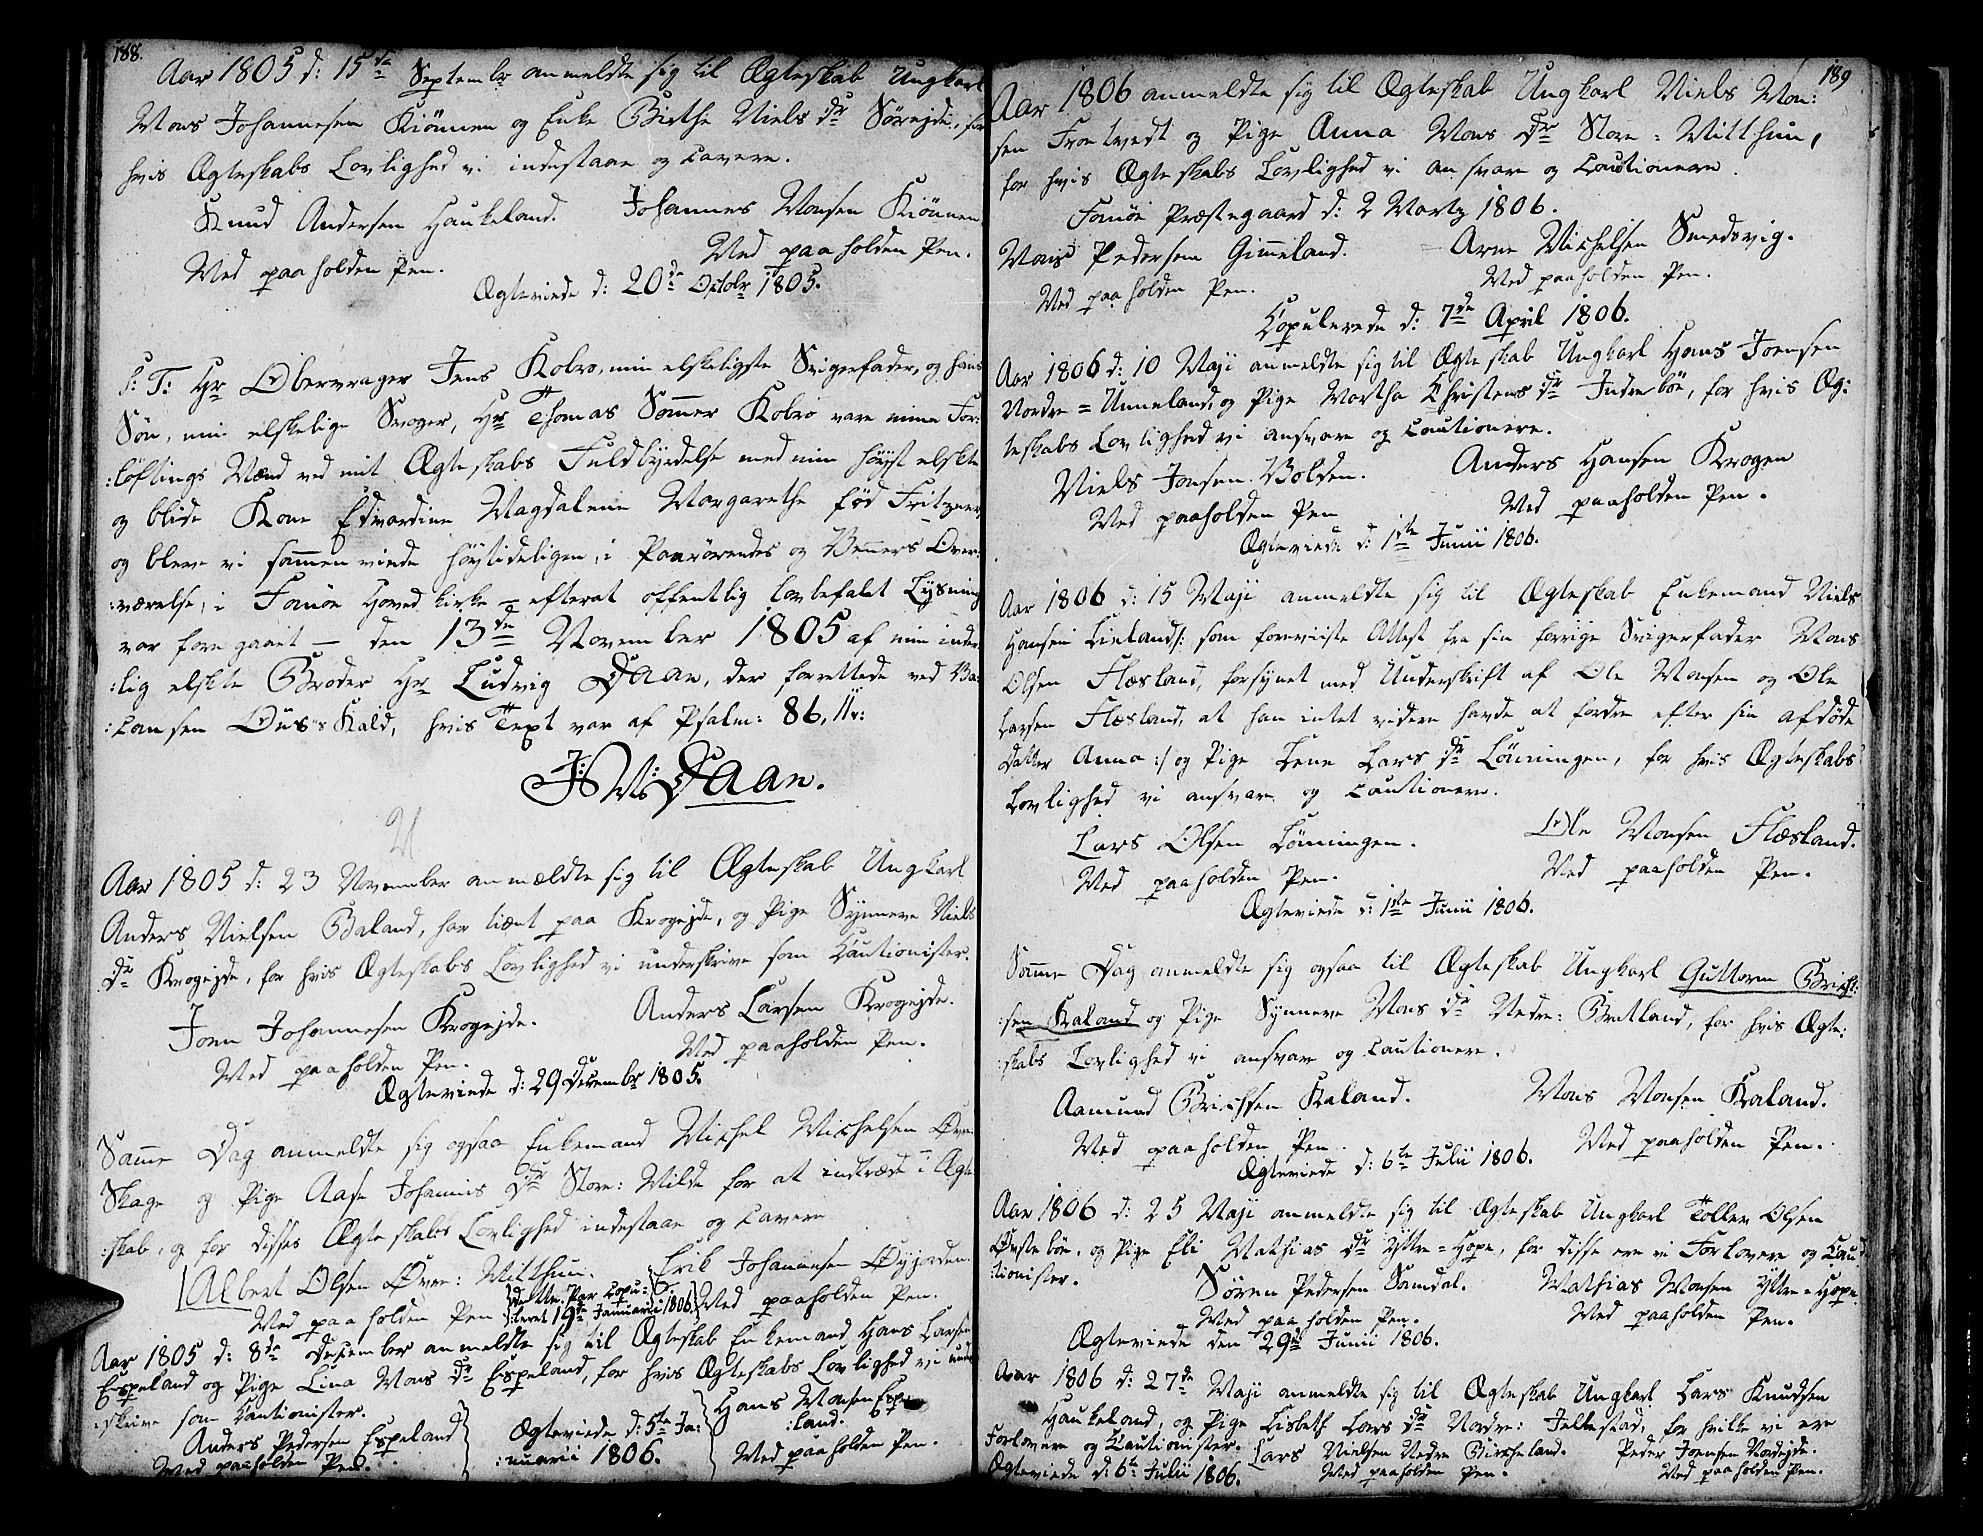 188.
Aar 1805 d: 15de Septembr anmeldte sig til Ægteskab Ungkarl
Mons Johannesen Kiönnen og Enke Birthe Niels dr Sörejde, for
hvis Ægteskabs Lovlighed vi indestaae og cavere.
Knud Andersen Haukeland. Johannes Monsen Kiönnen
Med paaholden Pen. Med paaholden Pen.
Ægteviede d: 20de Octobr 1805.
S: T: Hr Obervrager Jens Kobro, min elskeligste Svigerfader, og hans
Søn, min elskelige Svoger, Hr Thomas Sömer Kobro vare mine For:
:löftings Mænd ved mit Ægteskabs Fuldbyrdelse med min höyst elskte
og blide Kone Edvardine Magdalene Margarethe fød Fritzner
og bleve vi sammenviede höytideligen, i Paarörendes og Venners Over:
:værelse, i Fanöe Hoved kirke – efterat offentlig lovbefalet Lysning
var foregaaet – den 13de November 1805 af min inder:
:lig elskte Broder Hr Ludvig Daae, der forrettede ved Va:
:cansen Ous's Kald, hvis Text var af Psalm: 86, 11v:
J: M: Daae.
Aar 1805 d: 23 November anmældte sig til Ægteskab Ungkarl
Anders Nielsen Baland, har tient paa Krogejde, og Pige Synneve Niels
dr Krogejde, for hvis Ægteskabs Lovlighed vi underskrive som Cautionister.
Joen Johannesen Krogejde. Anders Larsen Krogejde.
Med paaholden Pen. Med paaholden Pen.
Ægteviede d: 29 Decembr 1805.
Samme Dag anmeldte sig ogsaa Enkemand Michel Michelsen Övre
Skage og Pige Aase Johannis Dr Store: Milde for at indtræde i Ægte
:skab, og for disses Ægteskabs Lovlighed indestaae og cavere
Albert Olsen Övre: Titthun. Erik Johannesen Öyjorden
Med paaholden Pen Dette Par Copu: Med paaholden Pen.
leret 19de Januarii 1806.
Aar 1805 d: 8de December anmeldte sig til Ægteskab Enkemand Hans Larsen
Espeland og Pige Lina Mons dr Espeland, for hvis Ægteskabs Lovlighed vi under
:skrive som Cautionister.
Anders Pedersen Espeland Ægteviede d: 5te Ja: Hans Monsen Espe
:land.
Med paaholden Pen. :nuarii 1806. Med paaholden Pen.
189
Aar 1806 anmeldte sig til Ægteskab Ungkarl Niels Mon:
sen Troetvedt og Pige Anna Mons Dr Store = Titthun,
for hvis Ægteskabs Lovlighed vi ansvare og Cautionere.
Fanöe Præstegaard d: 2 Martz 1806.
Mons Pedersen Gimeland. Arne Michelsen Smedsvig.
Med paaholden Pen. Med paaholden Pen.
Copulerede d: 7de April 1806.
Aar 1806 d: 10 Maji anmeldte sig til Ægteskab Ungkarl Hans Joensen
Nordre = Unneland, og Pige Martha Christens dr Indreböe, for hvis Æg:
teskabs Lovlighed vi ansvare og Cautionere.
Niels Jonsen Bolden. Anders Hansen Krogen
Med paaholden Pen Med paaholden Pen.
Ægteviede d: 1ste Junii 1806.
Aar 1806 d: 15 Maji anmeldte sig til Ægteskab Enkemand Niels
Hansen Lieland /: som foreviiste Attest fra sin forrige Svigerfader Mons
Olsen Flæsland, forsynet med Underskrift af Ole Monsen og Ole
Larsen Flæsland, at han intet videre havde at fordre efter sin afdöde
Datter Anna :/ og Pige Lene Lars dr Lönningen, for hvis Ægteskabs
Lovlighed vi ansvare og Cautionere.
Lars Olsen Lönningen. Ole Monsen Flæsland.
Med paaholden Pen. Med paaholden Pen.
Ægteviede d: 1ste Junii 1806.
Samme Dag anmeldte sig ogsaa til Ægteskab Ungkarl Guttorm Brich:
:sen Kaland og Pige Synneve Mons dr Nedre: Bratland, for hvis Ægte:
:skabs Lovlighed vi ansvare og Cautionere.
Aamund Brichsen Kaland. Mons Monsen Kaland.
Med paaholden Pen. Med paaholden Pen.
Ægteviede d: 6te Julii 1806.
Aar 1806 d: 25 Maji anmeldte sig til Ægteskab Ungkarl Toller Olsen
Östebøe, og Pige Eli Mathias dr Yttre = Hope, for disse ere vi Forlovere og Cau
:tionister. Sören Pedersen Samdal. Mathias Monsen Yttre = Hope.
Med paaholden Pen. Med paaholden Pen.
Ægteviede den 29de Junii 1806.
Aar 1806 d: 27de Maji anmeldte sig til Ægteskab Ungkarl Lars Knudsen
Haukeland, og Pige Lisbeth Lars dr Nordre: Jellestad, for hvilke vi ere
Forlovere og Cautionister. Lars Nielsen Nedre Birkeland. Peder Joensen Nordejde.
Ægteviede d: 6te Julii 1806. Med paaholden Pen. Med paaholden Pen.